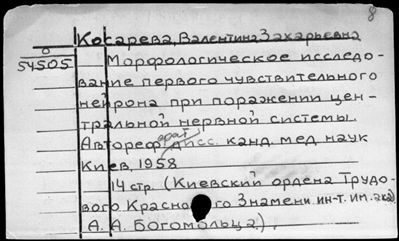 8
Косарева, Валентина Захарьевна
О
54505
Морфологическое исследо-
вание первого чувствительного
нейрона при поражении цен-
тральной нервной системы.
Автореф дисс. канд. мед наук
Киев, 1958
14 стр. (Киевский ордена Трудо-
вого Красного Знамени ин-т. Им. акад.
А. А. Богомольца).